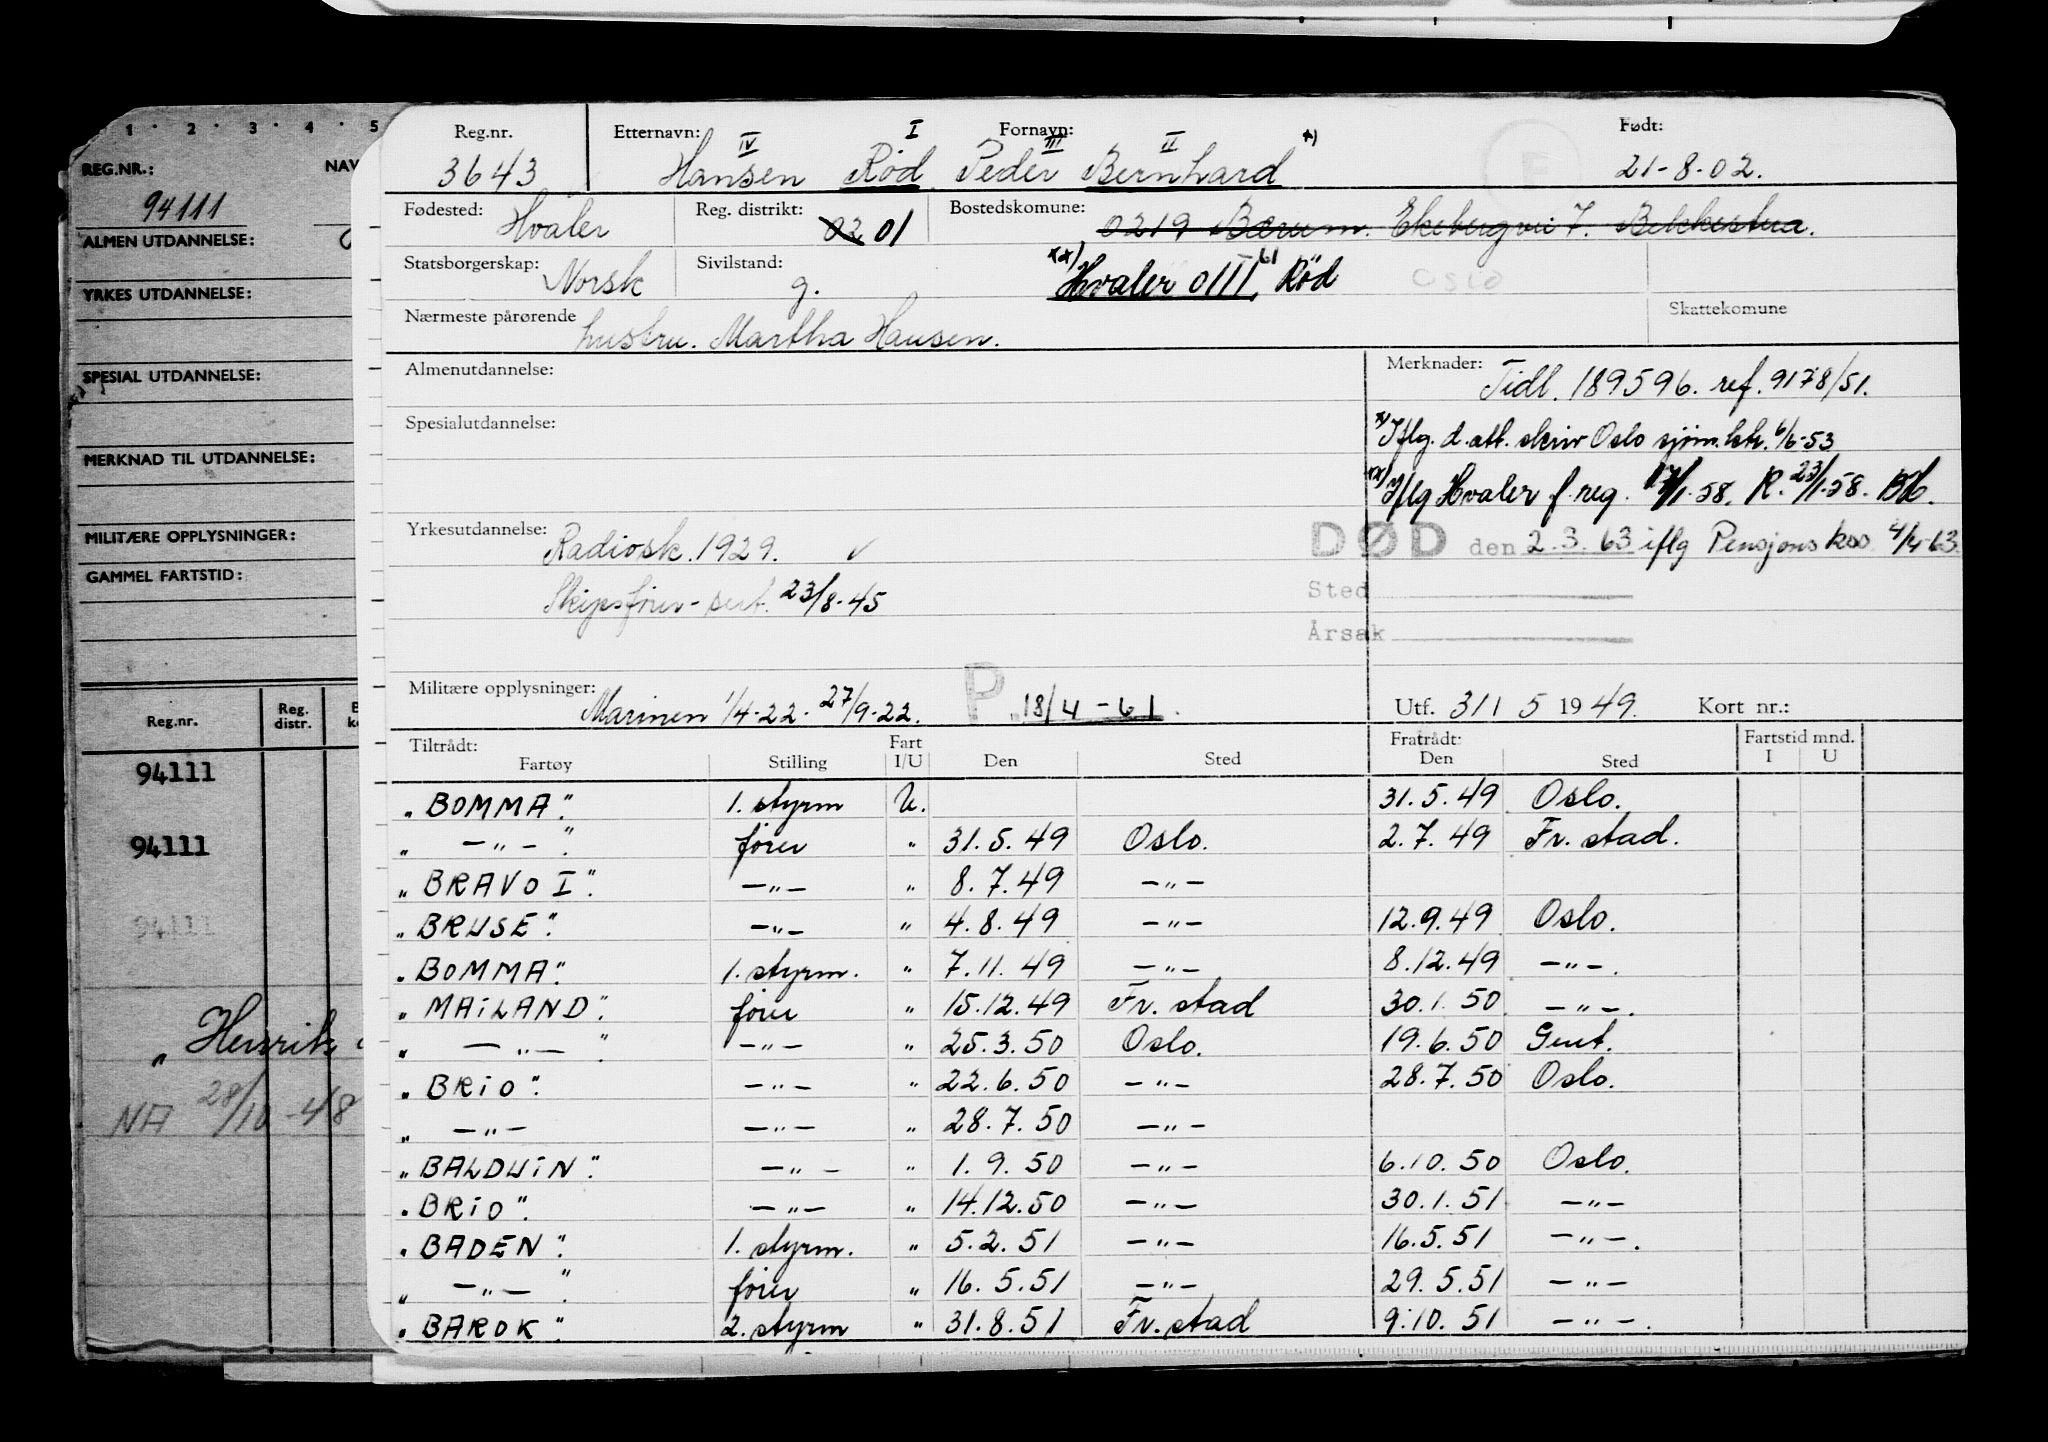 1 · 2 · 3 · 4 · 5
REG.NR.: NAV
94111
ALMEN UTDANNELSE:
YRKES UTDANNELSE:
SPESIAL UTDANNELSE:
MERKNAD TIL UTDANNELSE:
MILITÆRE OPPLYSNINGER:
GAMMEL FARTSTID:
Reg.nr. Reg. distr.
94111
94111
94111
„ Henrik
NA 28/10-48
Reg.nr. Etternavn: Fornavn: Født:
IV I III II x)
3643 Hansen Rød Peder Bernhard 21-8-02.
Fødested: Hvaler Reg. distrikt: 02 01 Bostedskomune: 0219 Bærum. Ekebergvei 7. Bekkestua.
Statsborgerskap: Norsk Sivilstand: g. xx) Hvaler 0111, 61 Rød Oslo
Nærmeste pårørende hustru. Martha Hansen. Skattekomune
Almenutdannelse: Merknader: Tidl. 189596. ref. 9178/51.
Spesialutdannelse: x) Iflg. d. att. skriv Oslo sjøm.ktr. 6/6-53
xx) Iflg Hvaler f.reg. 17/1-58. R. 23/1-58. BH.
Yrkesutdannelse: Radiosk. 1929. ✓ DØD den 2.3.63 iflg Pensjons kas 4/4-63
Skipsfører-sert. 23/8-45 Sted
Årsak
Militære opplysninger: Marinen 1/4-22. 27/9-22. P 18/4-61. Utf. 31 / 5 1949. Kort nr.:
Tiltrådt: Fart Fratrådt: Fartstid mnd.
Fartøy Stilling I/U Den Sted Den Sted I U
„BOMMA”. 1. styrm U. 31.5.49 Oslo.
„ —„— ”. fører „ 31.5.49 Oslo. 2.7.49 Fr. stad.
„BRAVO I”. —„— „ 8.7.49 —„—
„BRUSE”. —„— „ 4.8.49 —„— 12.9.49 Oslo.
„BOMMA”. 1. styrm. „ 7.11.49 —„— 8.12.49 —„—.
„MAILAND”. fører „ 15.12.49 Fr. stad 30.1.50 —„—.
„ —„— ” —„— „ 25.3.50 Oslo. 19.6.50 Gent.
„BRIO”. —„— „ 22.6.50 —„— 28.7.50 Oslo.
„ —„— —„— „ 28.7.50 —„—
„BALDUIN”. —„— „ 1.9.50 —„— 6.10.50 Oslo.
„BRIO”. —„— „ 14.12.50 —„— 30.1.51 —„—
„BADEN”. 1. styrm. „ 5.2.51 —„— 16.5.51 —„—.
„ —„— ”. fører „ 16.5.51 —„— 29.5.51 —„—
„BAROK” 2. styrm „ 31.8.51 Fr. stad 9.10.51 —„—.